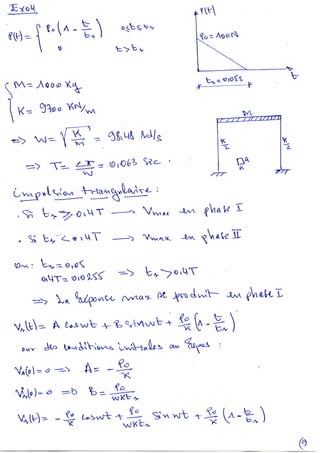 Ex04
P(t) = { P₀ (1 - t/t₁)   0≤t≤t₁
0   t>t₁
P(t)
P₀=100kN
t₁=0,05s
t
{ M = 1000 Kg
K = 9700 KN/m
=> W = √(K/M) = 98,48 rad/s
=> T = 2π/W = 0,063 Sec.
M
K/2
K/2
impulsion triangulaire :
. Si t₁ ≥ 0,4T → Vmax en phase I
. Si t₁ < 0,4T → Vmax en phase II
on : t₁ = 0,05
0,4T = 0,0255 => t₁ > 0,4T
=> La réponse max se produit en phase I
V₁(t) = A cos wt + B sin wt + P₀/K (1 - t/t₁)
our des conditions initiales au repos :
V₁(0) = 0 => A = - P₀/K
V̇₁(0) = 0 => B = P₀/(WKt₁)
V₁(t) = - P₀/K cos wt + P₀/(WKt₁) Sin wt + P₀/K (1 - t/t₁)
(9